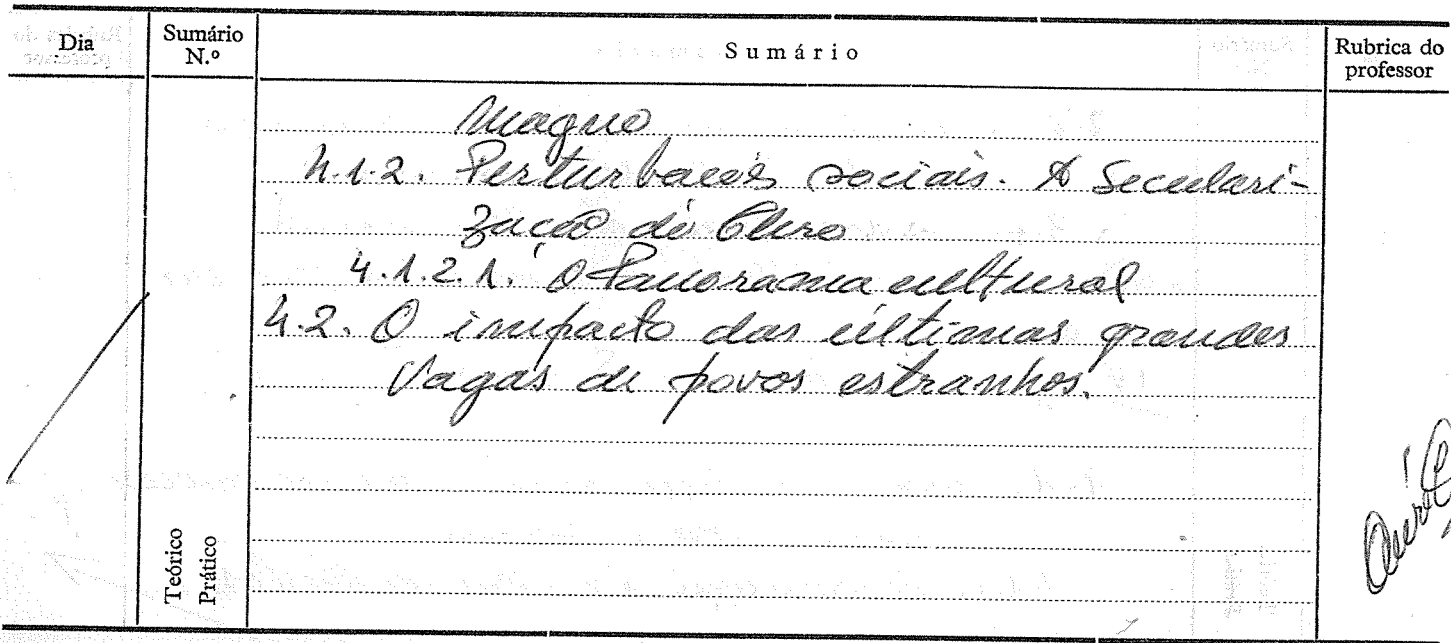 Dia
Sumário N.º
Sumário
Rubrica do professor
Magno
4.1.2. Perturbações sociais. A Seculari-
zação do Clero
4.1.2.1. O Panorama cultural
4.2. O impacto das últimas grandes
Vagas de povos estranhos.
Teórico
Prático